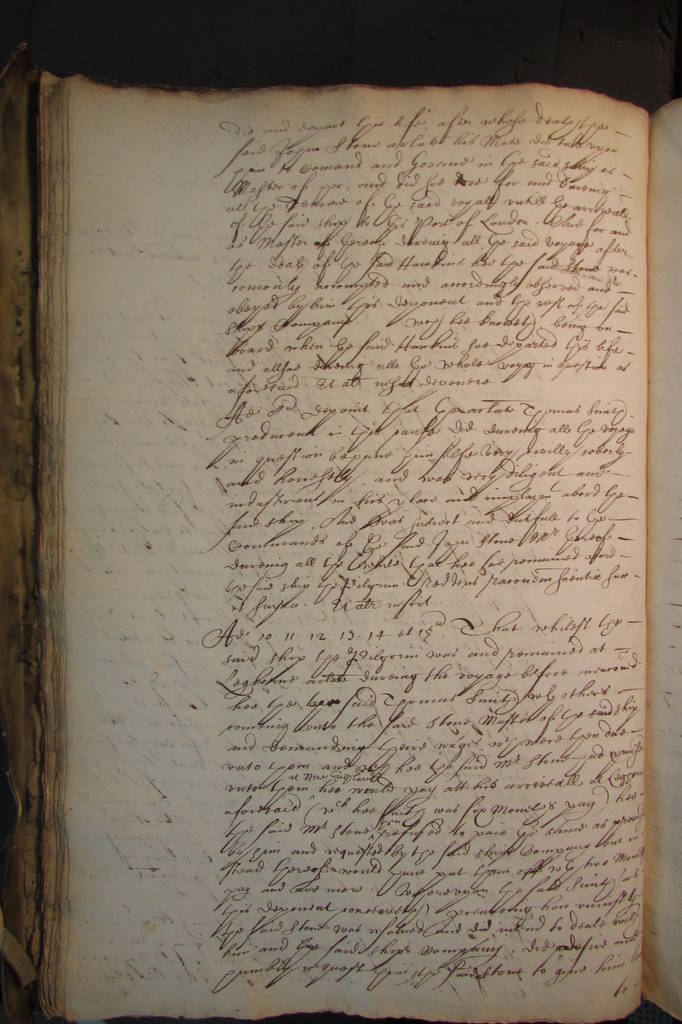 die and depart this life, after whose death the
said John Stone arlate his Mate did take upon
him to Comand and Governe in the said shipp as
Master of her, and did soe doe for and dureing
all the remainder of the said voyage untill the arrivall
of the said shipp to this Port of London. And for and
as Master thereof dureing all the said voyage after
the death of the said Hawkins hee the said Stone was
comonly accompted and accordingly observed and
obeyed by him this deponent and the rest of the said
shipps Company. being on
board when the said Hawkins soe departed this life
and alsoe dureing all the whole voyage in question as
aforesaid. Et aliter nescit deponere
Ad deponit That the arlate Thomas Smith
producent in this cause did dureing all the voyage
in question behave him selfe very civilly soberly
and honestly, and was very diligent and
industrious in his place and imployment aboard the
said shipp, And was obedient and dutifull to the
Commands of the said John Stone Mr thereof
dureing all the while that hee soe remained aboard
the said shipp the Pilgrim Reddens rationem scientiæ suæ
ut supra. Et aliter nescit
Ad 10 11 12 13 14 et 15 That whilest the
said shipp the Pilgrim was and remained at
Leghorne arlate dureing the voyage before mencioned
hee the said Thomas Smith with others
comeing unto the said Stone Master of the said shipp
and demanding their wages which were then due
unto them and hee the said Mr Stone had promised
unto them hee would pay att his arrivall at Legorne
at Newfoundland
aforesaid (which hee said was six Moneths pay) hee
the said Mr Stone then refused to paie the same as promised
by him and requested by the said shipps Company but in
stead thereof would have put them off with two Moneths
pay and noe more. Whereupon the said Smith (as
this deponent conceiveth) perceiving how unjustly
the said Stone was resolved and did intend to deale with
him and the said shipps Company, did desire and
humbly request him the said Stone to give him